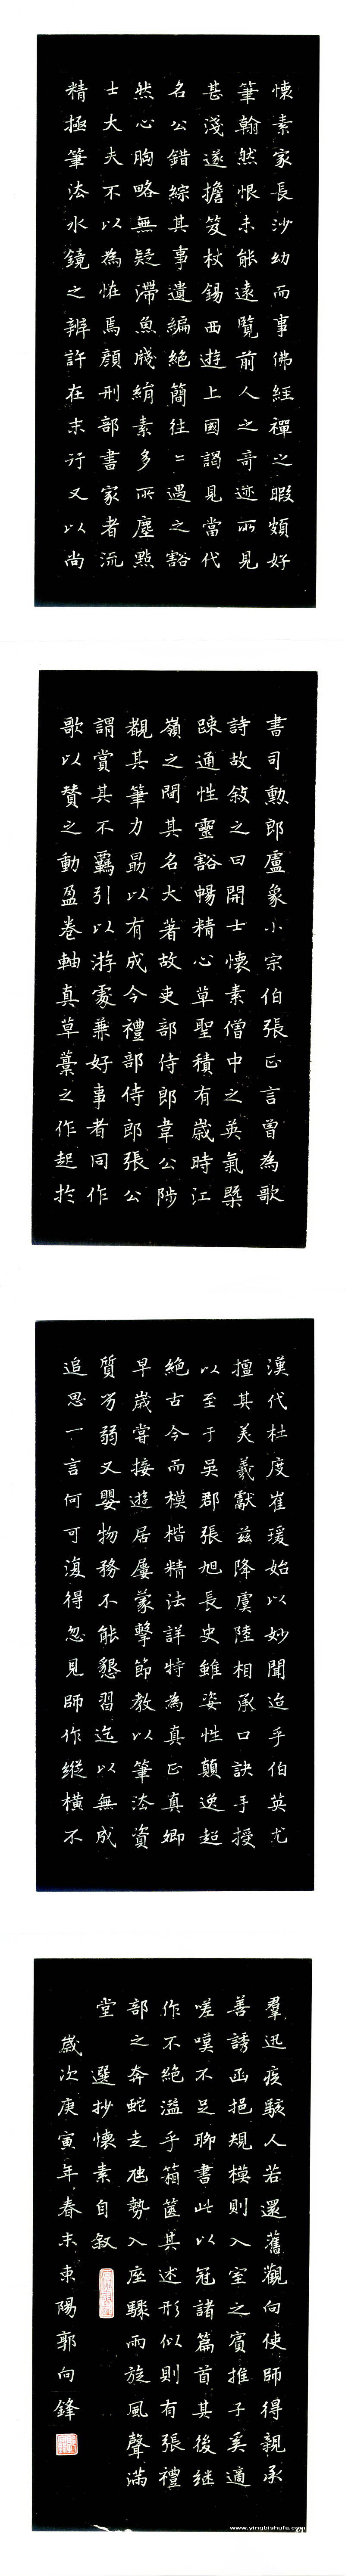 懐素家長沙幼而事佛經禪之暇頗好
筆翰然恨未能遠覽前人之奇迹所見
甚淺遂擔笈杖錫西遊上國謁見當代
名公錯綜其事遺編絕簡往々遇之豁
然心胸略無疑滯魚牋絹素多所塵點
士大夫不以為恠焉顔刑部書家者流
精極筆法水鏡之辨許在末行又以尚
書司勲郎盧象小宗伯張正言曾為歌
詩故敍之曰開士懐素僧中之英氣槩
踈通性靈豁暢精心草聖積有歲時江
嶺之間其名大著故吏部侍郎韋公陟
覩其筆力勗以有成今禮部侍郎張公
謂賞其不羈引以游處兼好事者同作
歌以贊之動盈卷軸真草藁之作起於
漢代杜度崔瑗始以妙聞迨乎伯英尤
擅其美羲獻兹降虞陸相承口訣手授
以至于吳郡張旭長史雖姿性顛逸超
絕古今而模楷精法詳特為真正真卿
早歲常接遊居屢蒙擊節教以筆法資
質劣弱又嬰物務不能懇習迄以無成
追思一言何可復得忽見師作縱橫不
羣迅疾駭人若還舊觀向使師得親承
善誘函挹規模則入室之賓捨子奚適
嗟嘆不足聊書此以冠諸篇首其後继
作不絕溢乎箱篋其述形似則有張禮
部之奔蛇走虺勢入座驟雨旋風聲滿
堂 選抄懐素自敘
歲次庚寅年春末東陽郭向鋒
www.yingbishufa.com